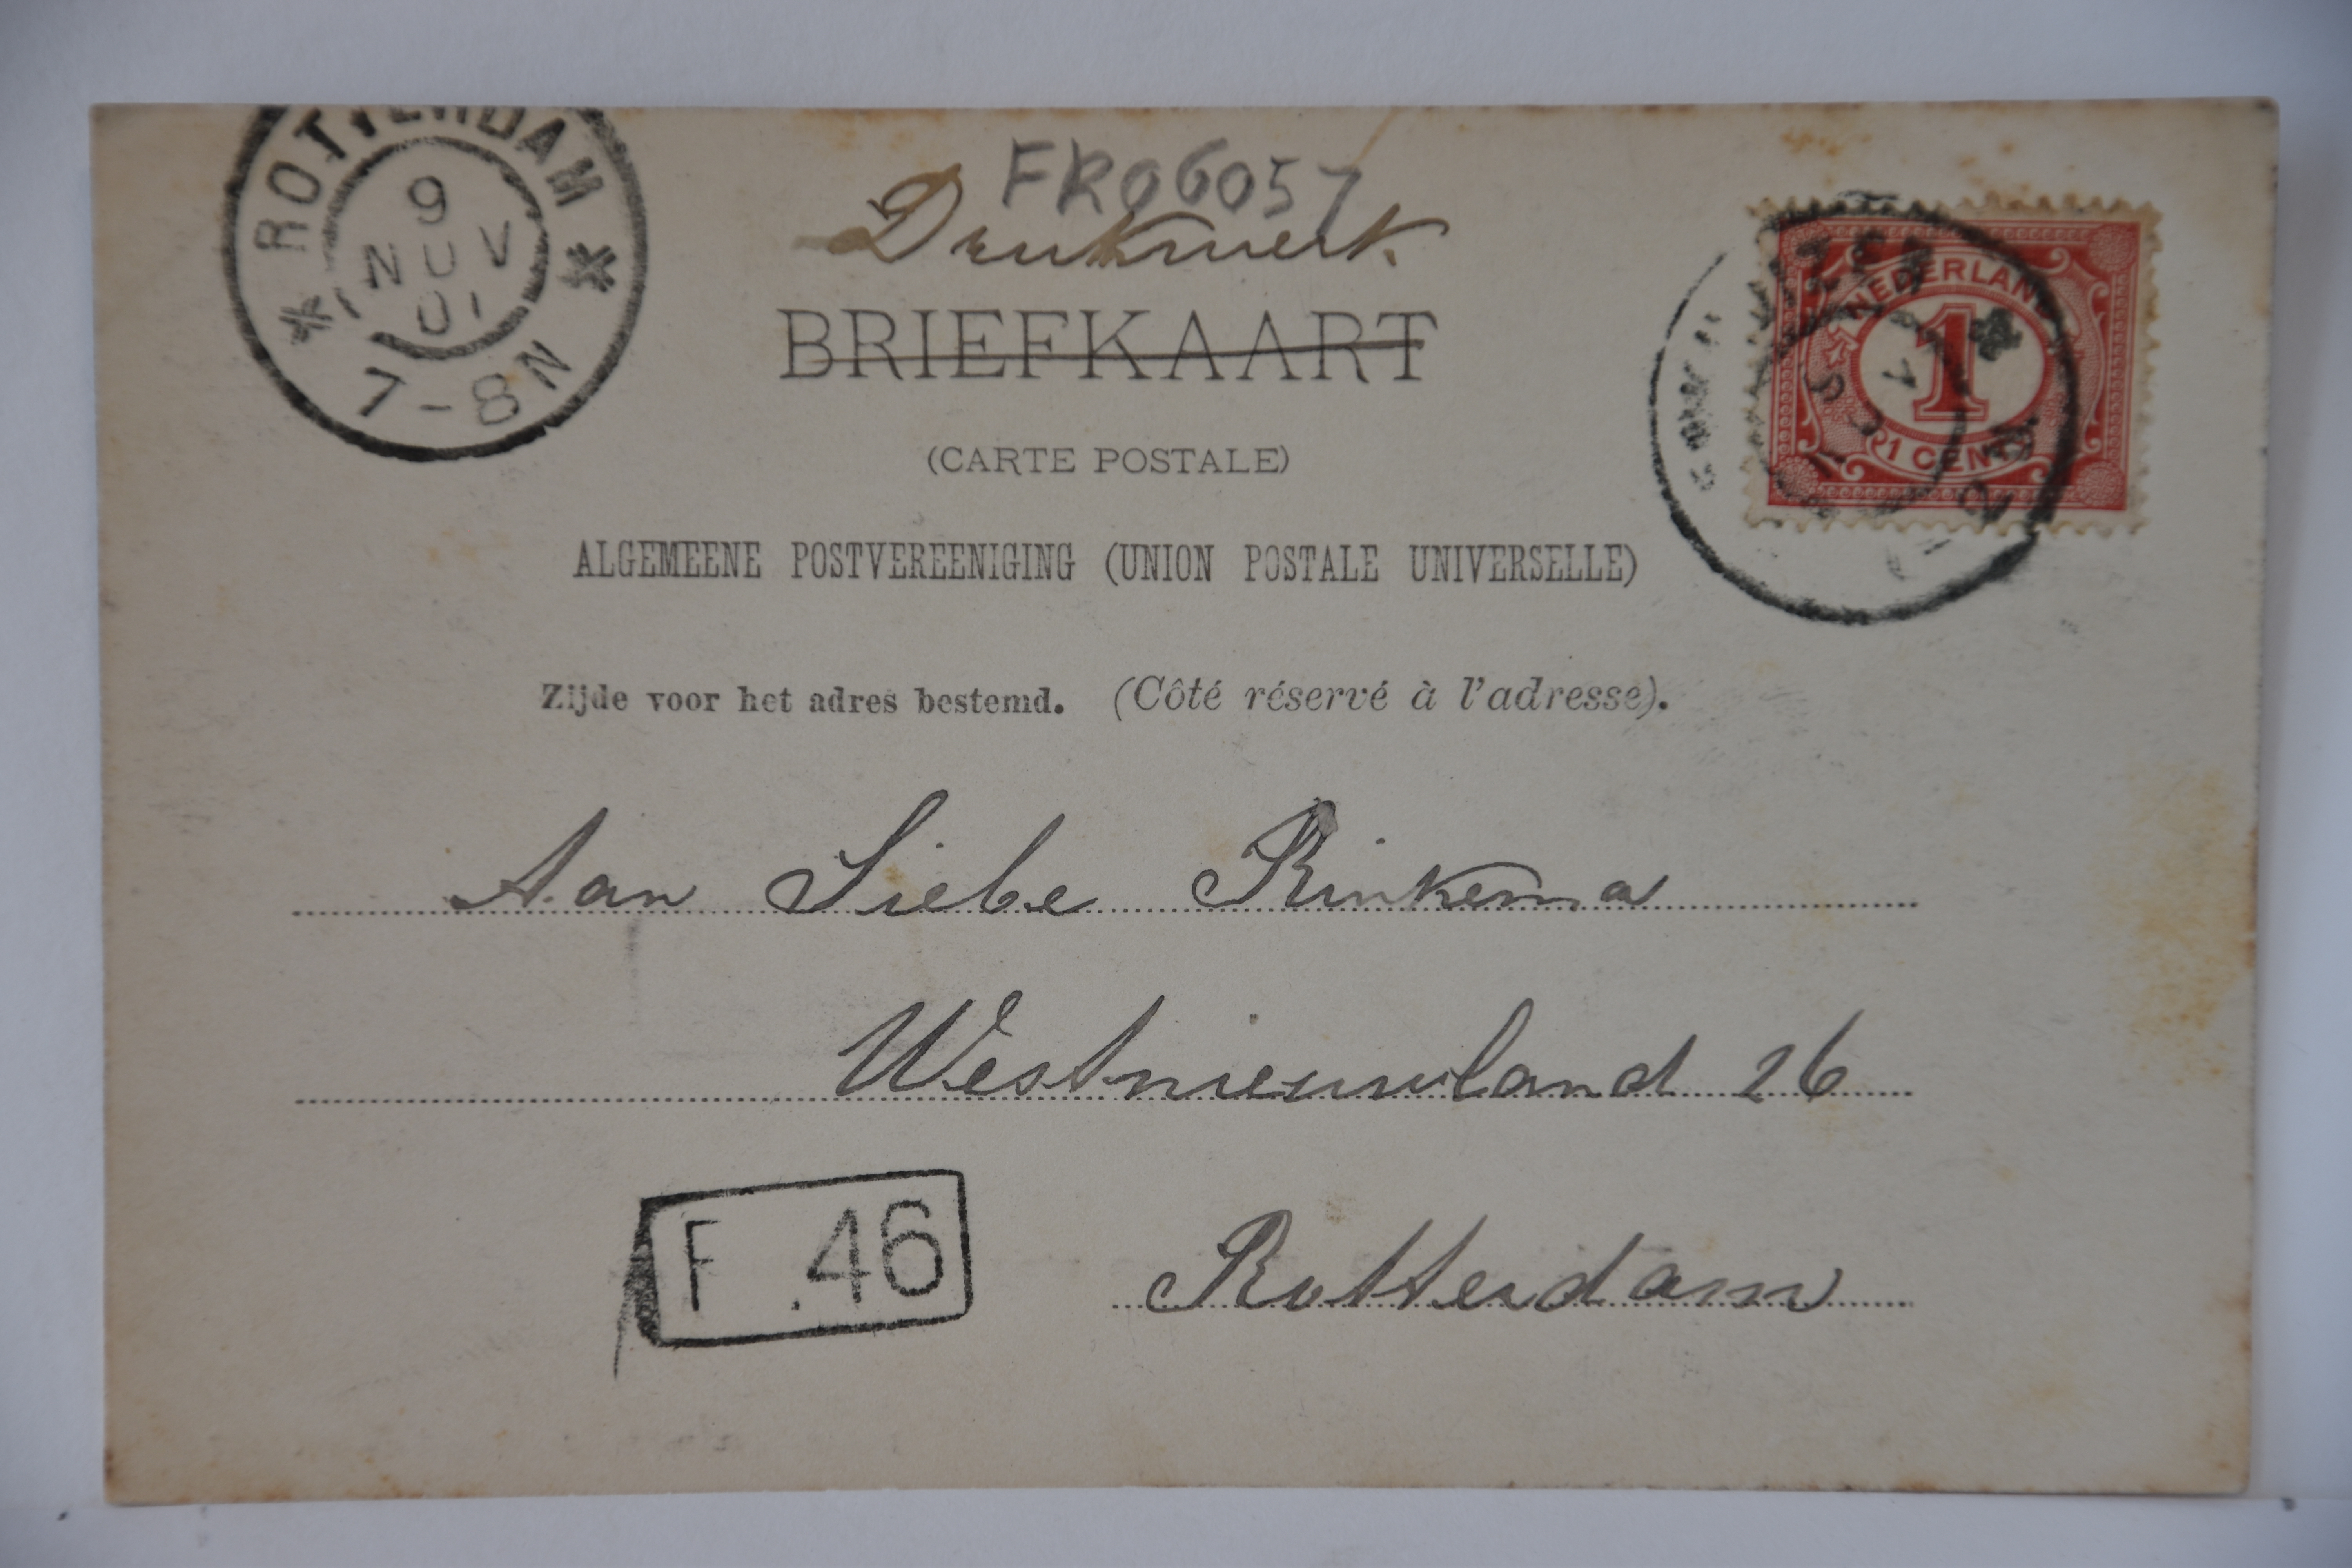 ROTTERDAM
9
NOV
01
7-8N
FR06057
Drukwerk
BRIEFKAART
(CARTE POSTALE)
NEDERLAND
1
1 CENT
ALGEMEENE POSTVEREENIGING (UNION POSTALE UNIVERSELLE)
Zijde voor het adres bestemd. (Côté réservé à l'adresse).
Aan Siebe Rinkema
Westnieuwland 26
F .46
Rotterdam